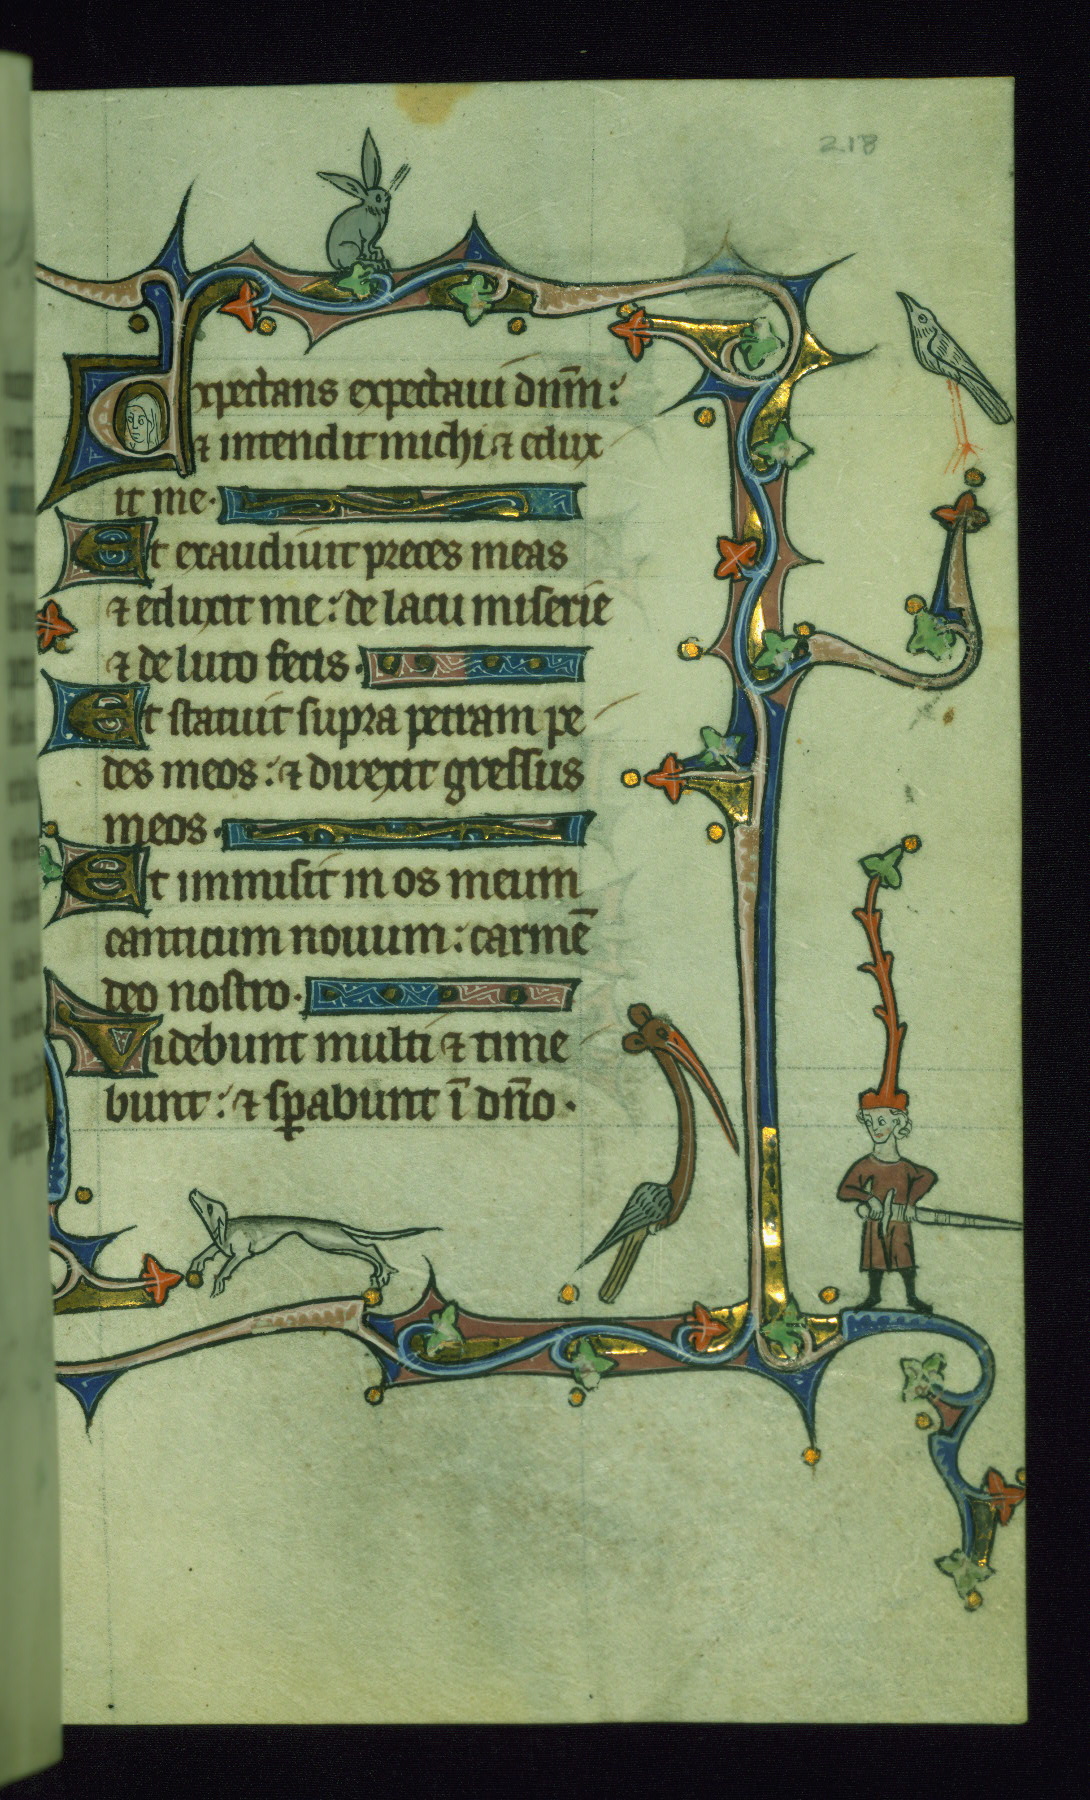 218
Expectans expectaui dnm̄:
⁊ intendit michi ⁊ edux
it me.
Et exaudiuit preces meas
⁊ eduxit me: de lacu miserie
⁊ de luto fecis.
Et statuit supra petram pe
des meos: ⁊ direxit gressus
meos.
Et immisit in os meum
canticum nouum: carmē
deo nostro.
Videbunt multi ⁊ time
bunt: ⁊ sꝑabunt ī dn̄o.